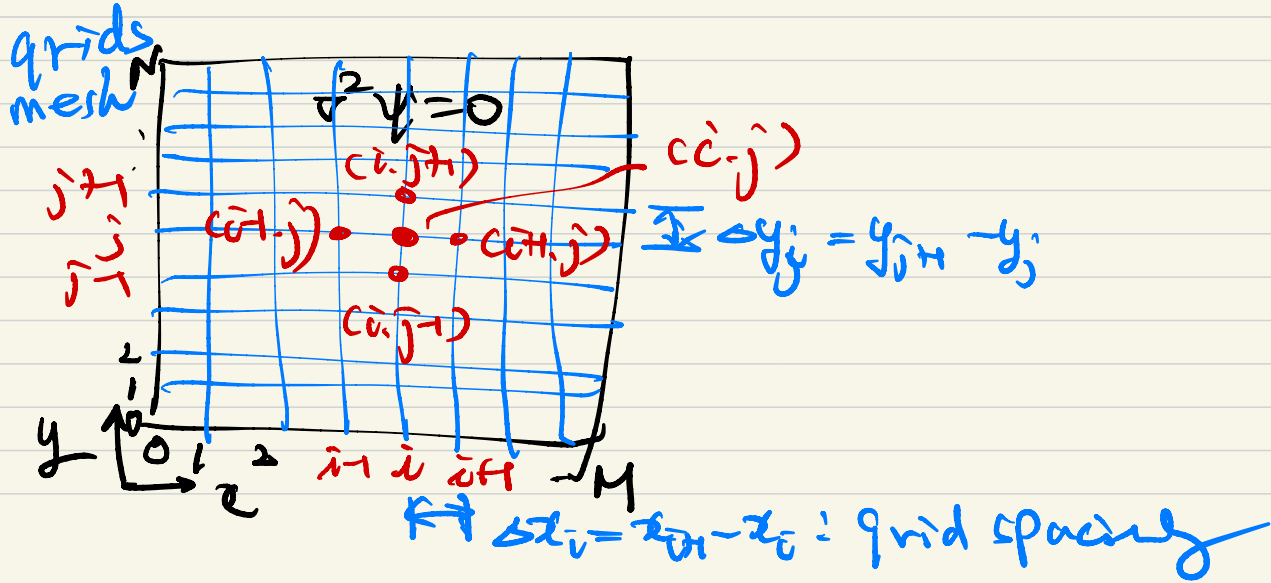 grids
mesh
N
∇²ψ=0
(i,j)
(i,j+1)
j+1
j
j-1
(i-1,j)
(i+1,j)
Δy_j = y_{j+1} - y_j
(i,j-1)
2
1
0
y
0 1 2 i-1 i i+1 M
x
Δx_i = x_{i+1} - x_i : grid spacing